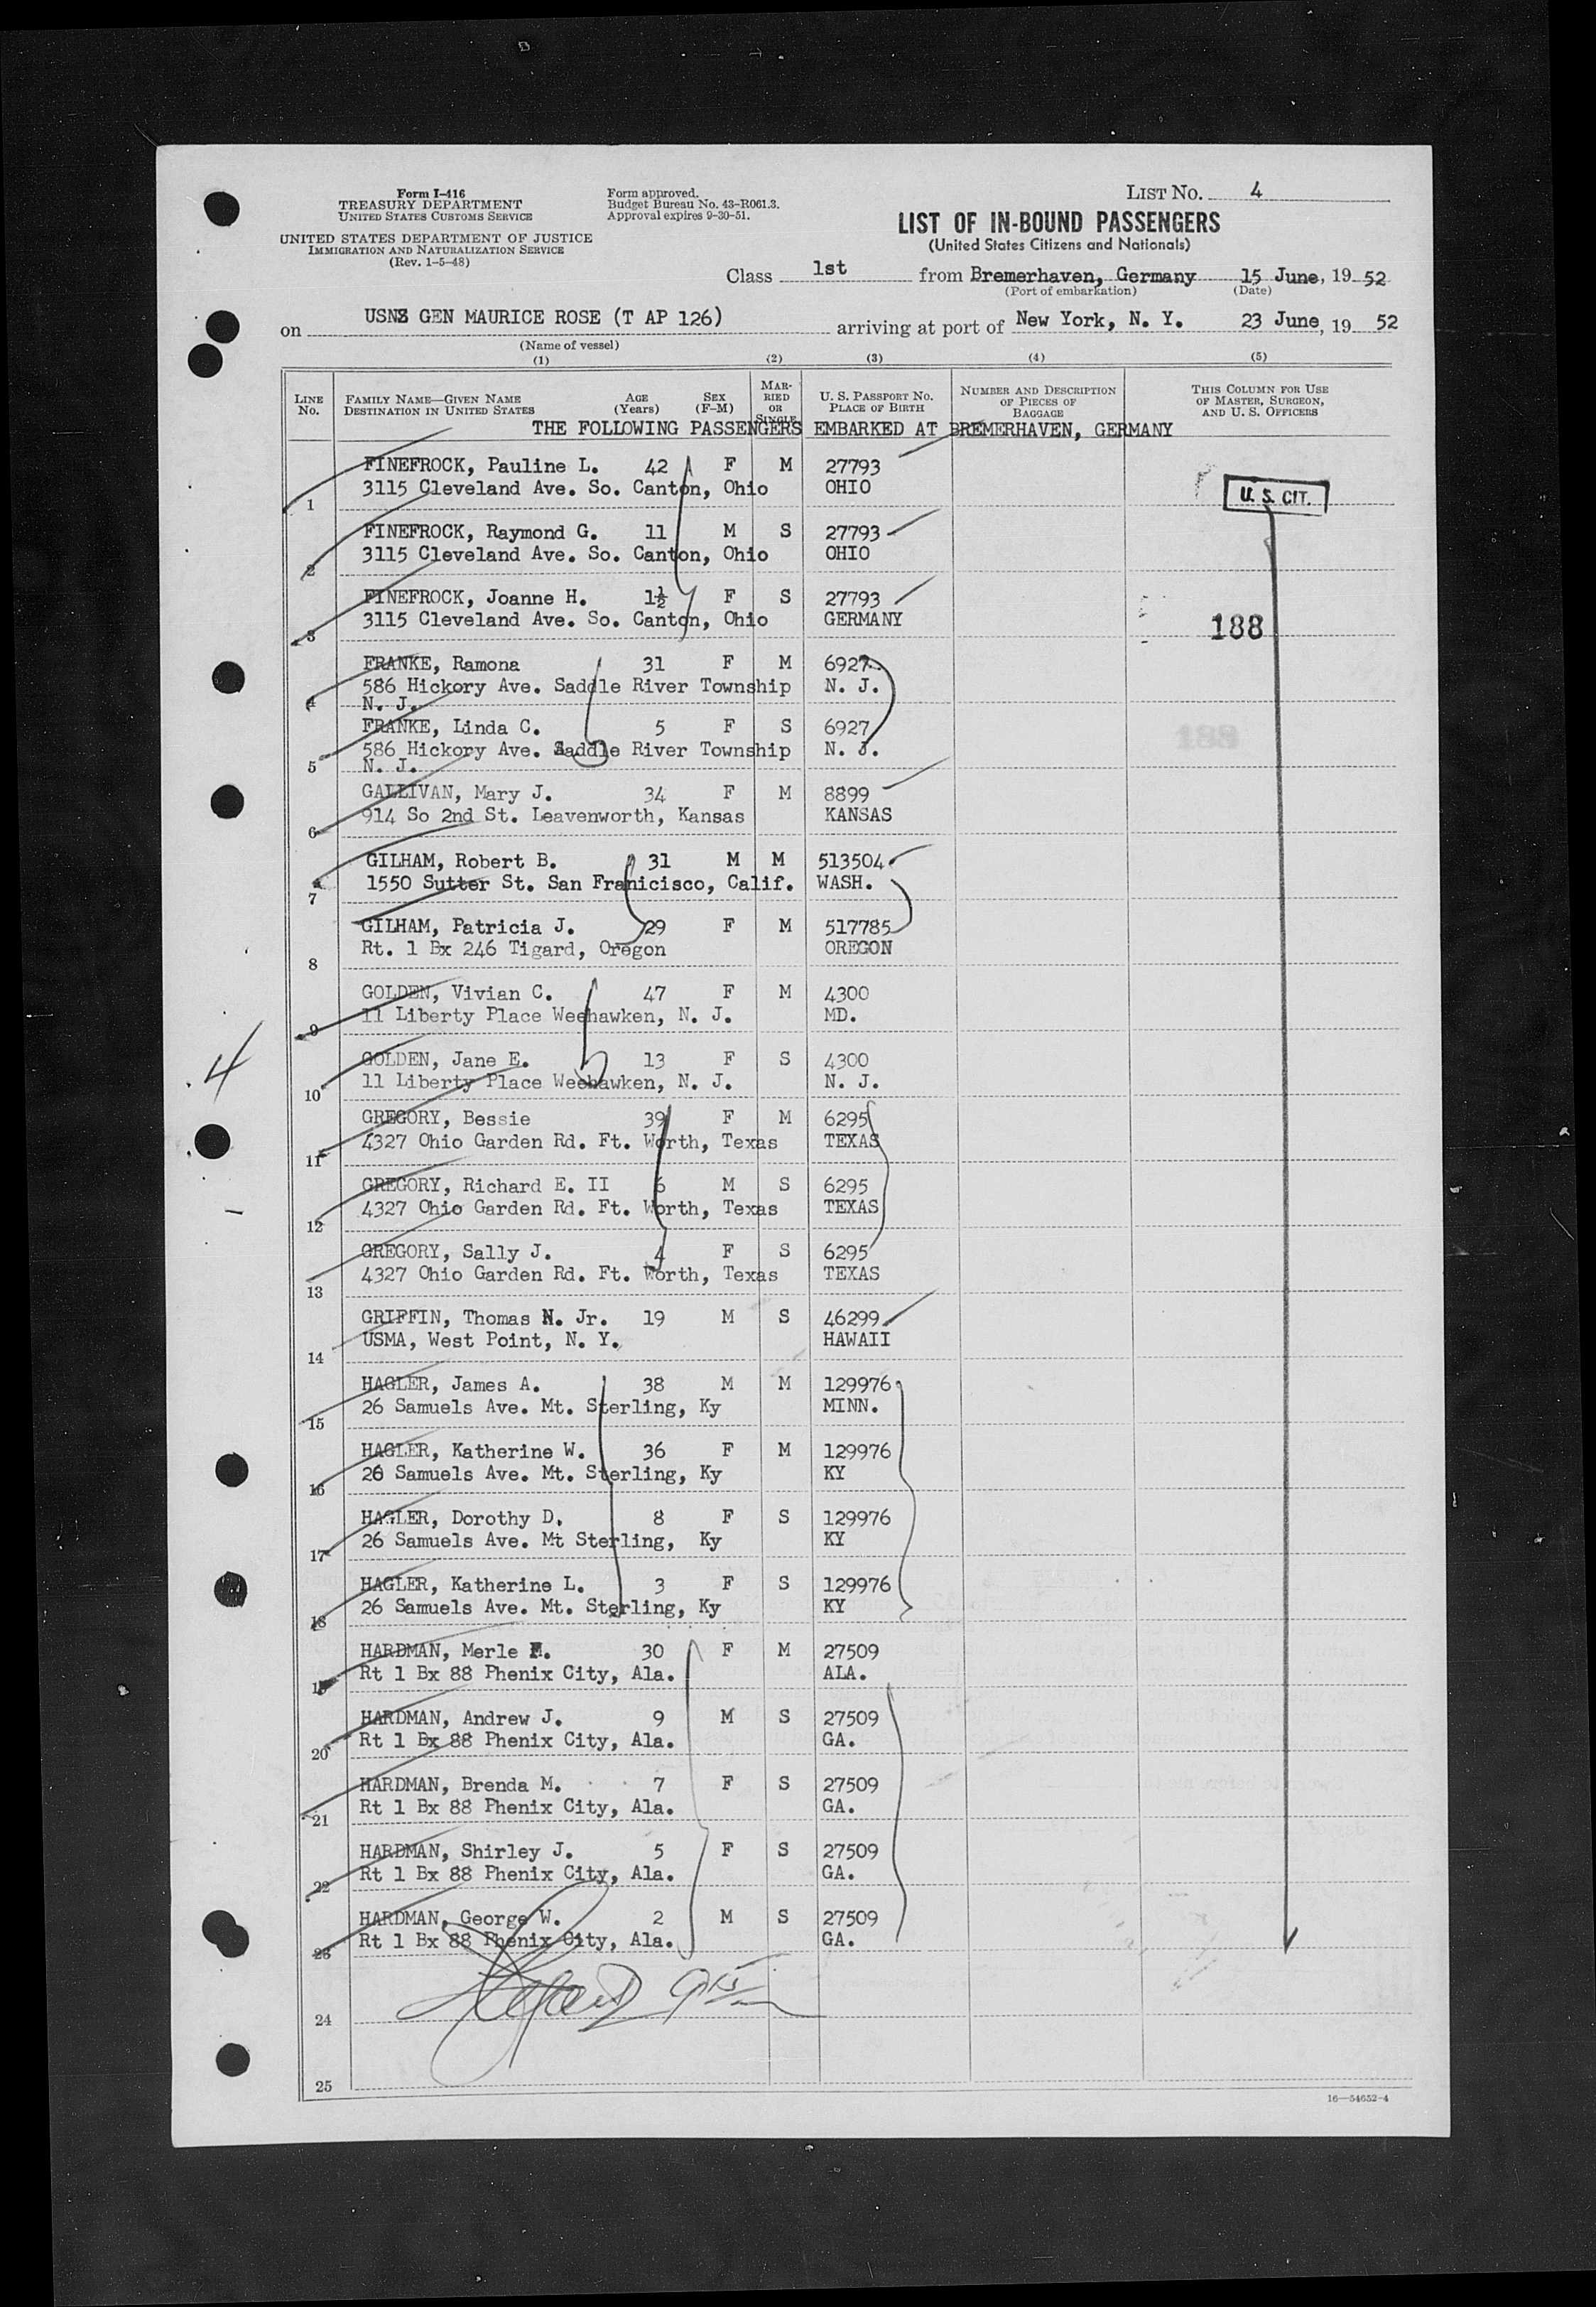 Form I-416
TREASURY DEPARTMENT
UNITED STATES CUSTOMS SERVICE
UNITED STATES DEPARTMENT OF JUSTICE
IMMIGRATION AND NATURALIZATION SERVICE
(Rev. 1-5-48)
Form approved.
Budget Bureau No. 43-R061.3.
Approval expires 9-30-51.
LIST NO. 4
LIST OF IN-BOUND PASSENGERS
(United States Citizens and Nationals)
Class 1st from Bremerhaven, Germany 15 June, 19 52
(Port of embarkation) (Date)
on USNS GEN MAURICE ROSE (T AP 126) arriving at port of New York, N. Y. 23 June, 19 52
(Name of vessel)
(1) (2) (3) (4) (5)
LINE No. FAMILY NAME—GIVEN NAME DESTINATION IN UNITED STATES AGE (Years) SEX (F-M) MARRIED OR SINGLE U. S. PASSPORT NO. PLACE OF BIRTH NUMBER AND DESCRIPTION OF PIECES OF BAGGAGE THIS COLUMN FOR USE OF MASTER, SURGEON, AND U. S. OFFICERS
THE FOLLOWING PASSENGERS EMBARKED AT BREMERHAVEN, GERMANY
FINEFROCK, Pauline L. 42 F M 27793
1 3115 Cleveland Ave. So. Canton, Ohio OHIO U. S. CIT.
FINEFROCK, Raymond G. 11 M S 27793
2 3115 Cleveland Ave. So. Canton, Ohio OHIO
FINEFROCK, Joanne H. 1½ F S 27793
3 3115 Cleveland Ave. So. Canton, Ohio GERMANY 188
FRANKE, Ramona 31 F M 6927
586 Hickory Ave. Saddle River Township N. J.
4 N. J.
FRANKE, Linda C. 5 F S 6927
586 Hickory Ave. Saddle River Township N. J. 188
5 N. J.
GALLIVAN, Mary J. 34 F M 8899
6 914 So 2nd St. Leavenworth, Kansas KANSAS
GILHAM, Robert B. 31 M M 513504
7 1550 Sutter St. San Franicisco, Calif. WASH.
GILHAM, Patricia J. 29 F M 517785
8 Rt. 1 Bx 246 Tigard, Oregon OREGON
GOLDEN, Vivian C. 47 F M 4300
9 11 Liberty Place Weehawken, N. J. MD.
GOLDEN, Jane E. 13 F S 4300
10 11 Liberty Place Weehawken, N. J. N. J.
4
GREGORY, Bessie 39 F M 6295
11 4327 Ohio Garden Rd. Ft. Worth, Texas TEXAS
GREGORY, Richard E. II 6 M S 6295
12 4327 Ohio Garden Rd. Ft. Worth, Texas TEXAS
GREGORY, Sally J. 4 F S 6295
13 4327 Ohio Garden Rd. Ft. Worth, Texas TEXAS
GRIFFIN, Thomas N. Jr. 19 M S 46299
14 USMA, West Point, N. Y. HAWAII
HAGLER, James A. 38 M M 129976
15 26 Samuels Ave. Mt. Sterling, Ky MINN.
HAGLER, Katherine W. 36 F M 129976
16 26 Samuels Ave. Mt. Sterling, Ky KY
HAGLER, Dorothy D. 8 F S 129976
17 26 Samuels Ave. Mt Sterling, Ky KY
HAGLER, Katherine L. 3 F S 129976
18 26 Samuels Ave. Mt. Sterling, Ky KY
HARDMAN, Merle 30 F M 27509
19 Rt 1 Bx 88 Phenix City, Ala. ALA.
HARDMAN, Andrew J. 9 M S 27509
20 Rt 1 Bx 88 Phenix City, Ala. GA.
HARDMAN, Brenda M. 7 F S 27509
21 Rt 1 Bx 88 Phenix City, Ala. GA.
HARDMAN, Shirley J. 5 F S 27509
22 Rt 1 Bx 88 Phenix City, Ala. GA.
HARDMAN, George W. 2 M S 27509
23 Rt 1 Bx 88 Phenix City, Ala. GA.
24
25
16—54652-4